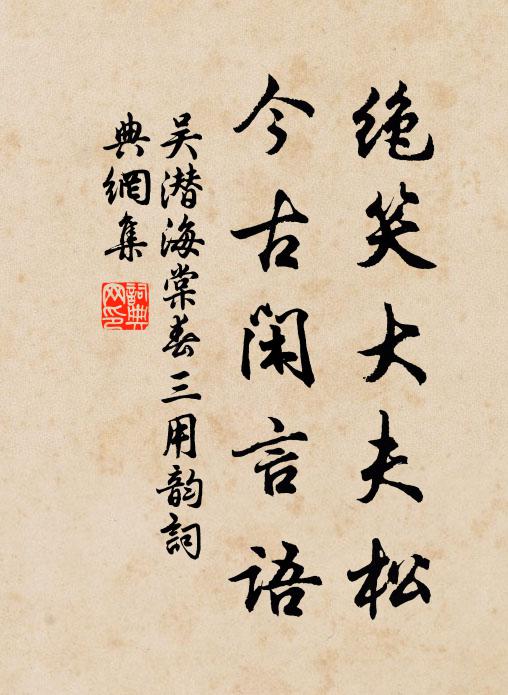 绝笑大夫松
今古闲言语
吴潜海棠春三用韵詞
典網集
詞典
网印